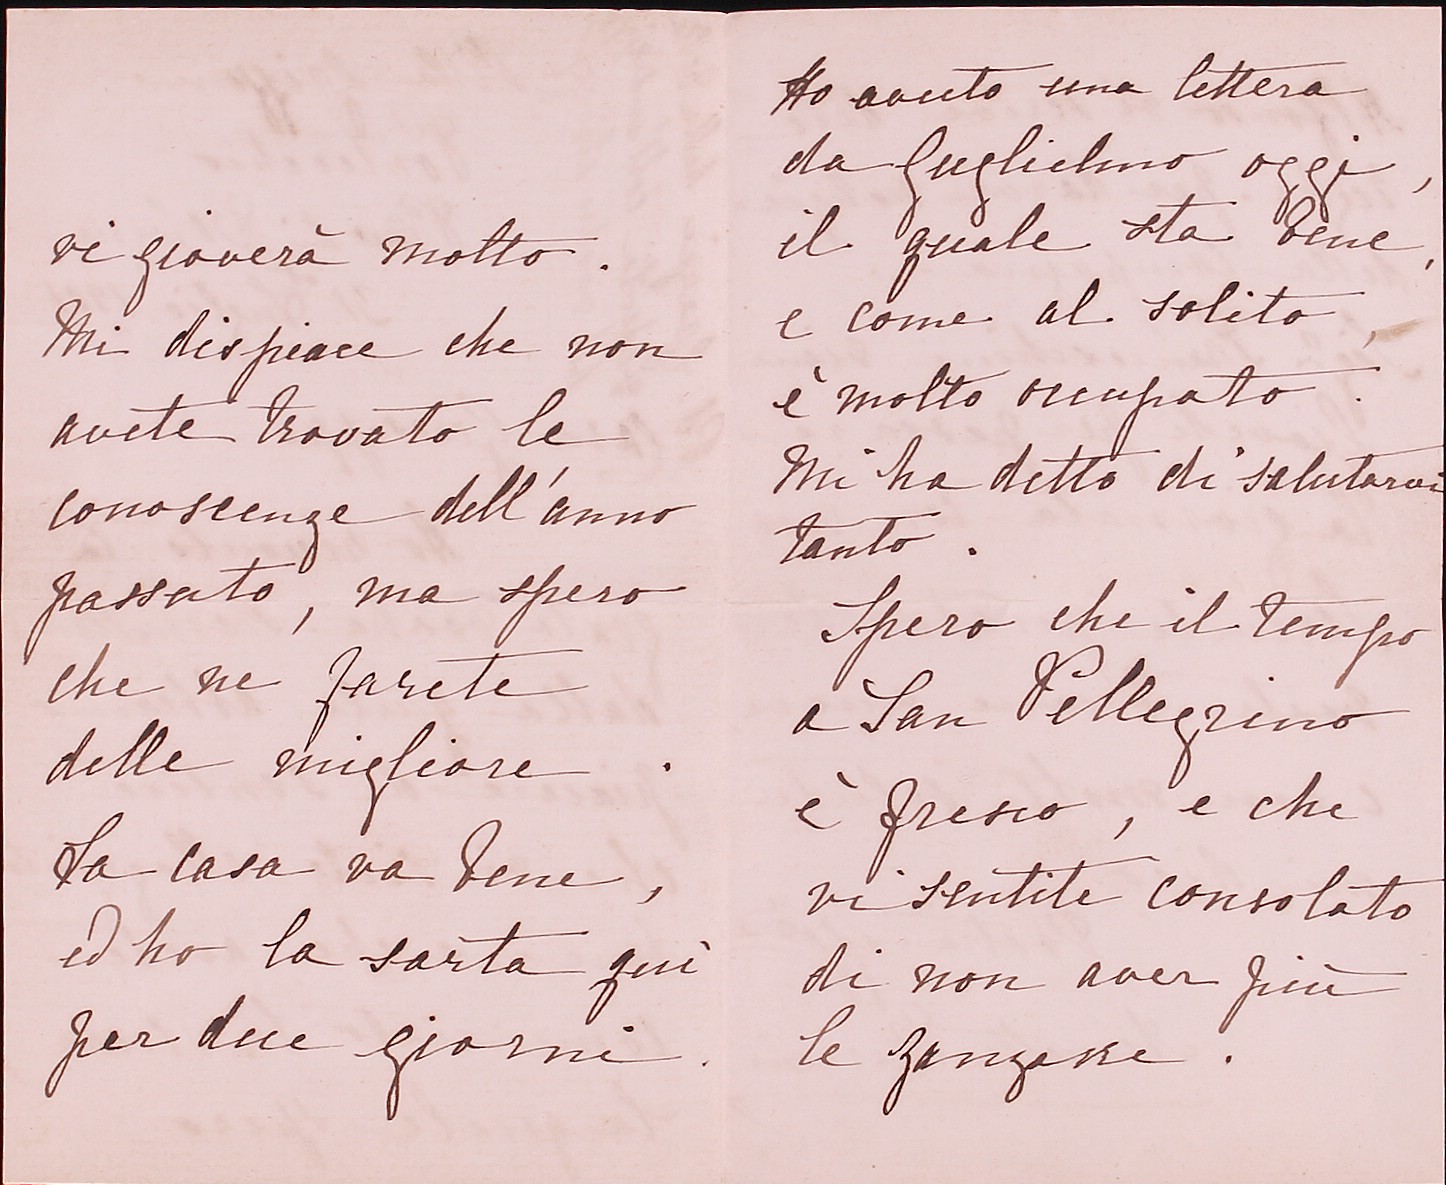 vi gioverà molto.
Mi dispiace che non
avete trovato le
conoscenze dell'anno
passato, ma spero
che ne farete
delle migliore.
La casa va bene,
ed ho la sarta quì
per due giorni.
Ho avuto una lettera
da Guglielmo oggi,
il quale sta bene,
e come al solito,
è molto occupato.
Mi ha detto di salutarvi
tanto.
Spero che il tempo
a San Pellegrino
è fresco, e che
vi sentite consolato
di non aver più
le zanzare.